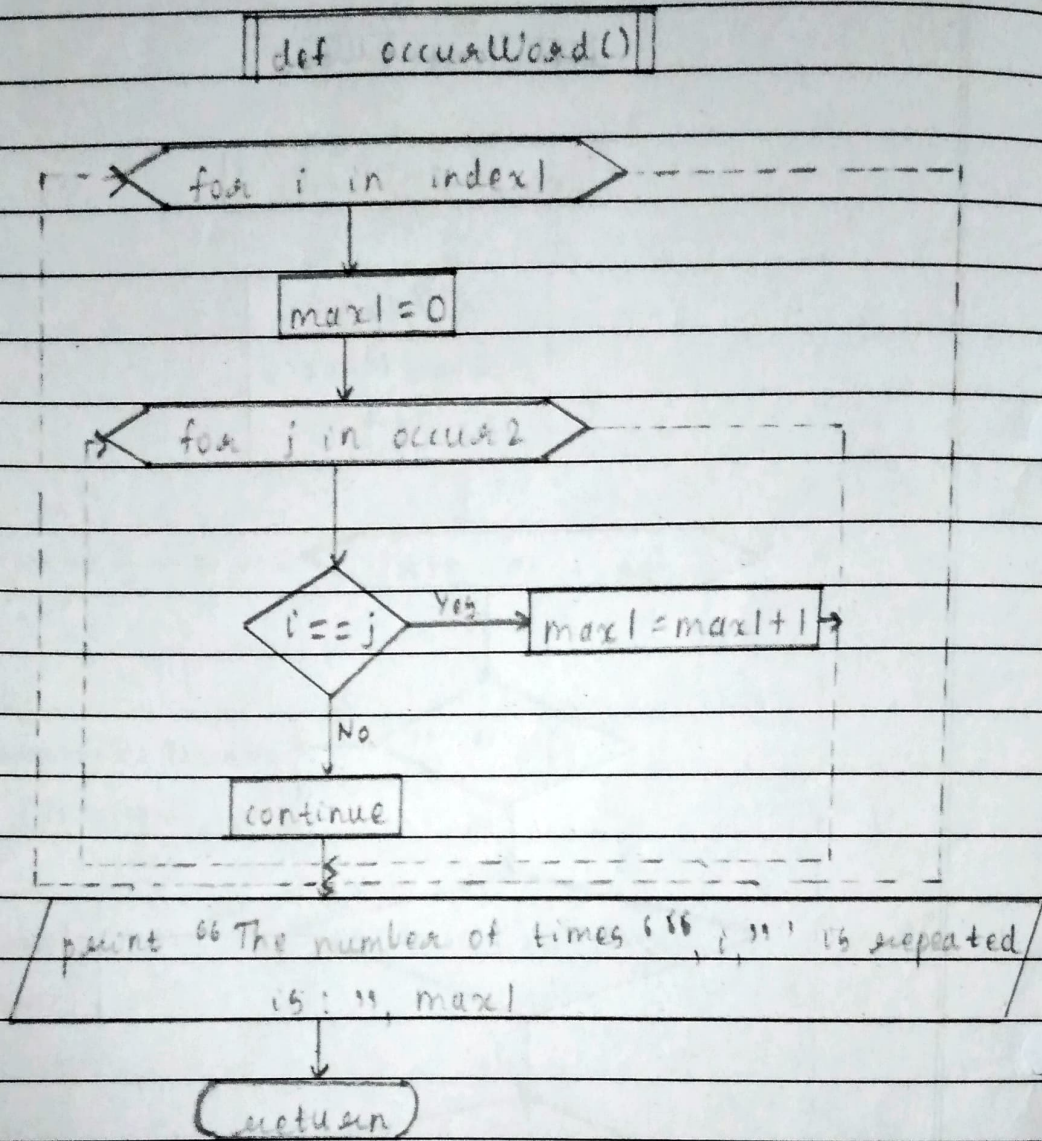 def occurWord()
for i in index1
max1=0
for j in occur2
i==j
Yes
max1=max1+1
No
continue
print “The number of times ‘“,i,”’ is repeated
is:”, max1
return